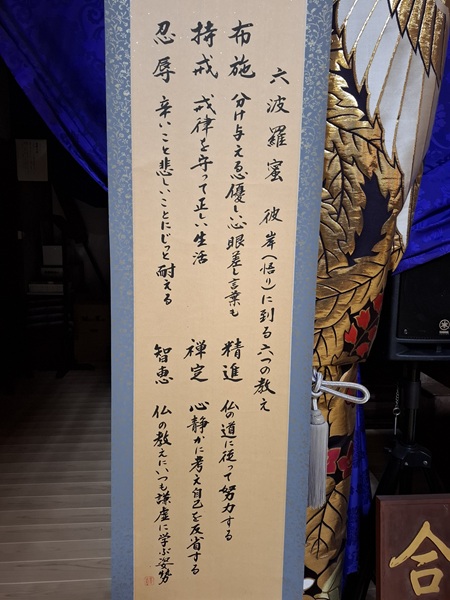 六波羅蜜 彼岸(悟り)に到る六つの教え
布施 分け与える優しい心 眼差し言葉も
精進 仏の道に従って努力する
持戒 戒律を守って正しい生活
禅定 心静かに考え自己を反省する
忍辱 辛いこと悲しいことにじっと耐える
智恵 仏の教えにいつも謙虚に学ぶ姿勢
合